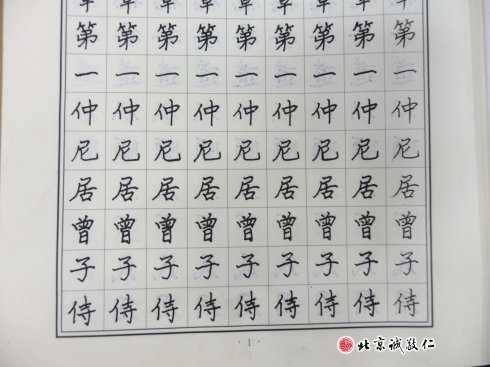 章章章章章章章章章
第第第第第第第第第
一一一一一一一一一
仲仲仲仲仲仲仲仲仲
尼尼尼尼尼尼尼尼尼
居居居居居居居居居
曾曾曾曾曾曾曾曾曾
子子子子子子子子子
侍侍侍侍侍侍侍侍侍
·1·
北京诚敬仁